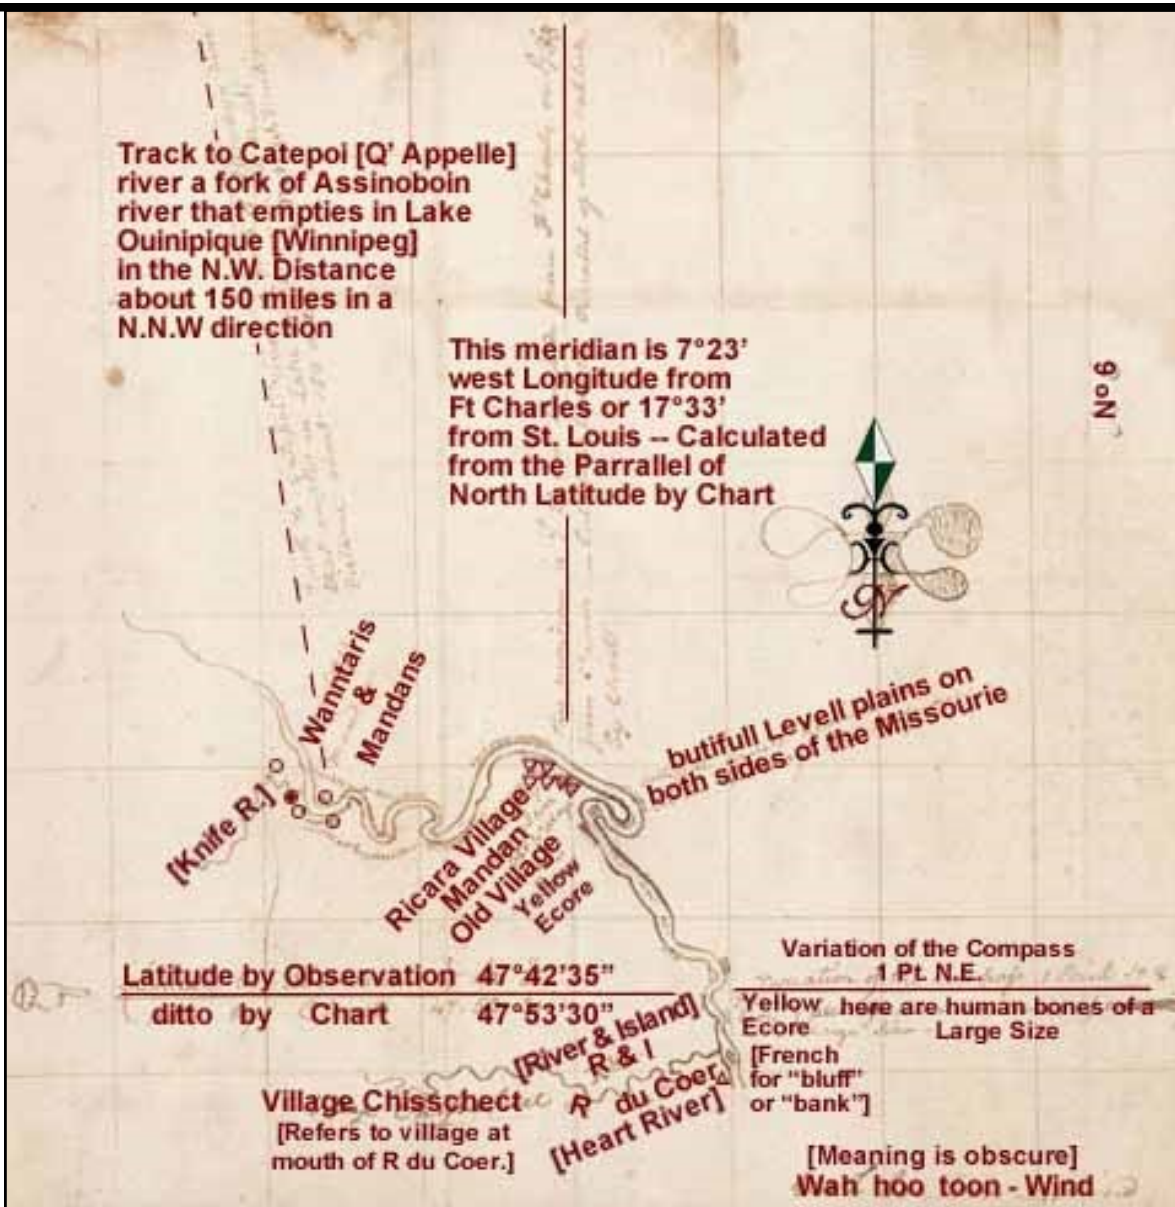 Track to Catepoi [Q' Appelle]
river a fork of Assinoboin
river that empties in Lake
Ouinipique [Winnipeg]
in the N.W. Distance
about 150 miles in a
N.N.W direction
This meridian is 7°23’
west Longitude from
Ft Charles or 17°33’
from St. Louis -- Calculated
from the Parrallel of
North Latitude by Chart
9 oN
N
Wanntaris
&
Mandans
butifull Levell plains on
both sides of the Missourie
[Knife R.]
Ricara Village
Mandan
Old Village
Yellow
Ecore
Latitude by Observation 47°42’35”
ditto by Chart 47°53’30”
Variation of the Compass
1 Pt. N.E.
Yellow
Ecore
here are human bones of a
Large Size
[French
for “bluff”
or “bank”]
[River & Island]
R & I
R du Coer
[Heart River]
Village Chisschect
[Refers to village at
mouth of R du Coer.]
[Meaning is obscure]
Wah hoo toon - Wind